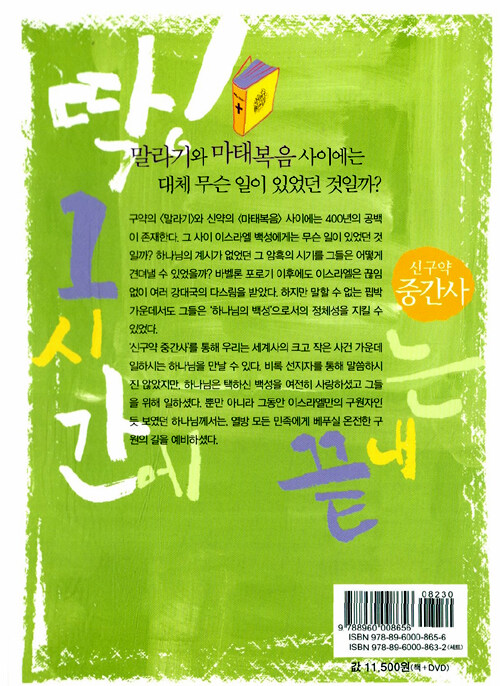 딱!
1
시
간에
끝
내
는
말라기와 마태복음 사이에는
대체 무슨 일이 있었던 것일까?
구약의 〈말라기〉와 신약의 〈마태복음〉 사이에는 400년의 공백
이 존재한다. 그 사이 이스라엘 백성에게는 무슨 일이 있었던 것
일까? 하나님의 계시가 없었던 그 암흑의 시기를 그들은 어떻게
견뎌낼 수 있었을까? 바벨론 포로기 이후에도 이스라엘은 끊임
없이 여러 강대국의 다스림을 받았다. 하지만 말할 수 없는 핍박
가운데서도 그들은 '하나님의 백성'으로서의 정체성을 지킬 수
있었다.
'신구약 중간사'를 통해 우리는 세계사의 크고 작은 사건 가운데
일하시는 하나님을 만날 수 있다. 비록 선지자를 통해 말씀하시
진 않았지만, 하나님은 택하신 백성을 여전히 사랑하셨고 그들
을 위해 일하셨다. 뿐만 아니라 그동안 이스라엘만의 구원자인
듯 보였던 하나님께서는, 열방 모든 민족에게 베푸실 온전한 구
원의 길을 예비하셨다.
신구약
중간사
08230
9 788960 008656
ISBN 978-89-6000-865-6
ISBN 978-89-6000-863-2 (세트)
값 11,500원(책+DVD)